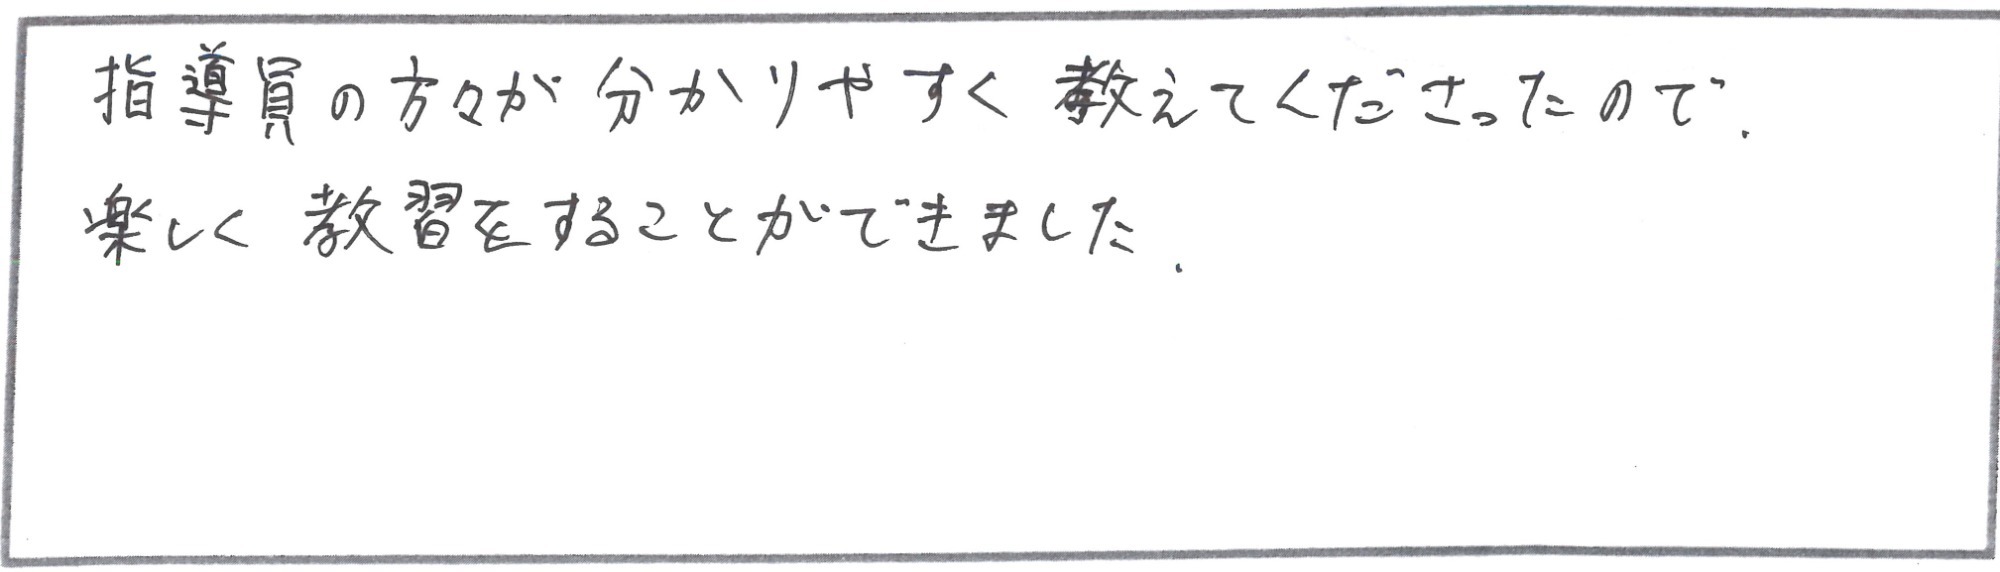 指導員の方々が分かりやすく教えてくださったので.
楽しく教習をすることができました.